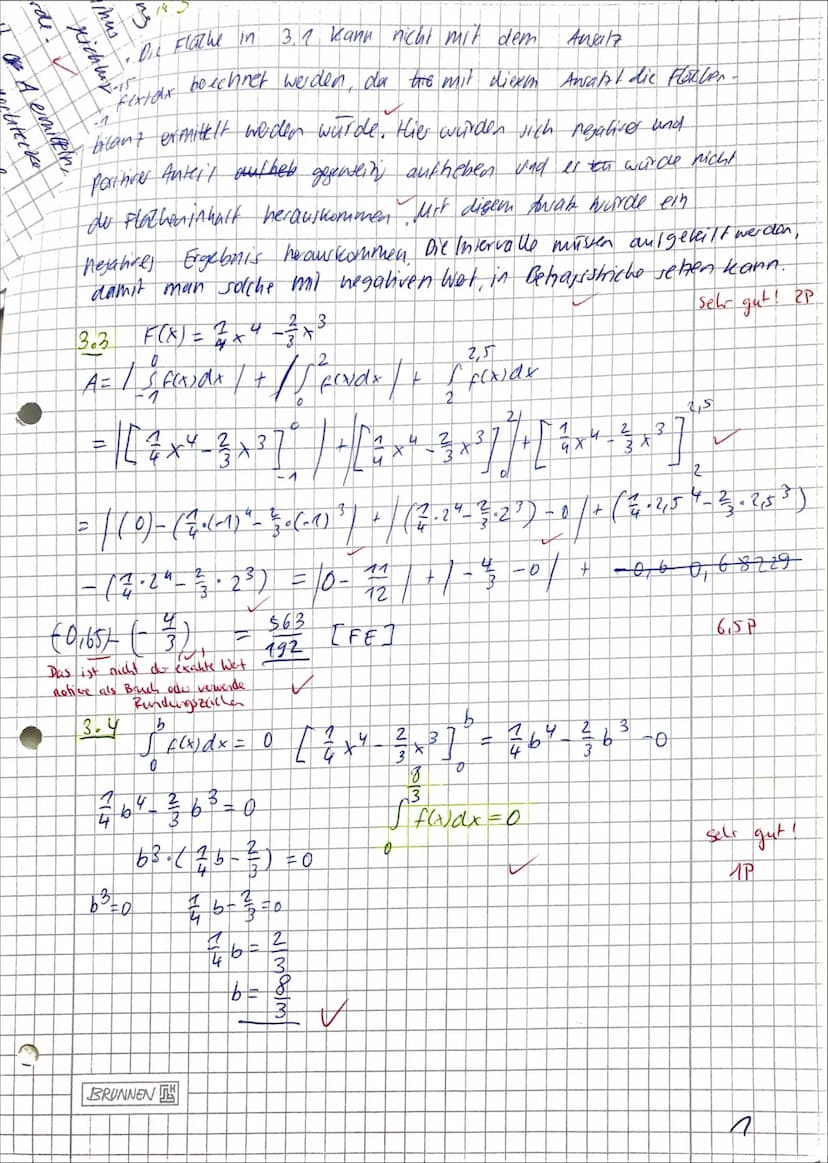 • Die Fläche in 3.1 kann nicht mit dem Ansatz
∫ f(x)dx berechnet werden, da mit diesem Ansatz die Flächen-
bilanz ermittelt werden würde. Hier würden sich negativer und
positiver Anteil gegenseitig aufheben und es würde nicht
der Flächeninhalt herauskommen. Mit diesem Ansatz würde ein
Ergebnis herauskommen. Die Intervalle müssen aufgeteilt werden,
damit man solche mit negativen Wert, in Betragsstriche setzen kann.
sehr gut! 2P
3.3 F(x) = 1/4 x^4 - 2/3 x^3
A = |∫_{-1}^{0} f(x)dx| + |∫_{0}^{2} f(x)dx| + ∫_{2}^{2,5} f(x)dx
= |[1/4 x^4 - 2/3 x^3]_{-1}^{0}| + |[1/4 x^4 - 2/3 x^3]_{0}^{2}| + [1/4 x^4 - 2/3 x^3]_{2}^{2,5}
= |(0) - (1/4 · (-1)^4 - 2/3 · (-1)^3| + |(1/4 · 2^4 - 2/3 · 2^3) - 0| + (1/4 · 2,5^4 - 2/3 · 2,5^3)
- (1/4 · 2^4 - 2/3 · 2^3) = |0 - 11/12| + |- 4/3 - 0| +
(-0,65) - (- 4/3) = 563/192 [FE]
6,5P
Das ist nicht der exakte Wert
notiere als Bruch oder verwende
Rundungszeichen
3.4 ∫_{0}^{b} f(x)dx = 0 [1/4 x^4 - 2/3 x^3]_{0}^{b} = 1/4 b^4 - 2/3 b^3 - 0
1/4 b^4 - 2/3 b^3 = 0 ∫_{0}^{8/3} f(x)dx = 0
b^3 · (1/4 b - 2/3) = 0
sehr gut!
1P
b^3 = 0 1/4 b - 2/3 = 0
1/4 b = 2/3
b = 8/3
BRUNNEN
1